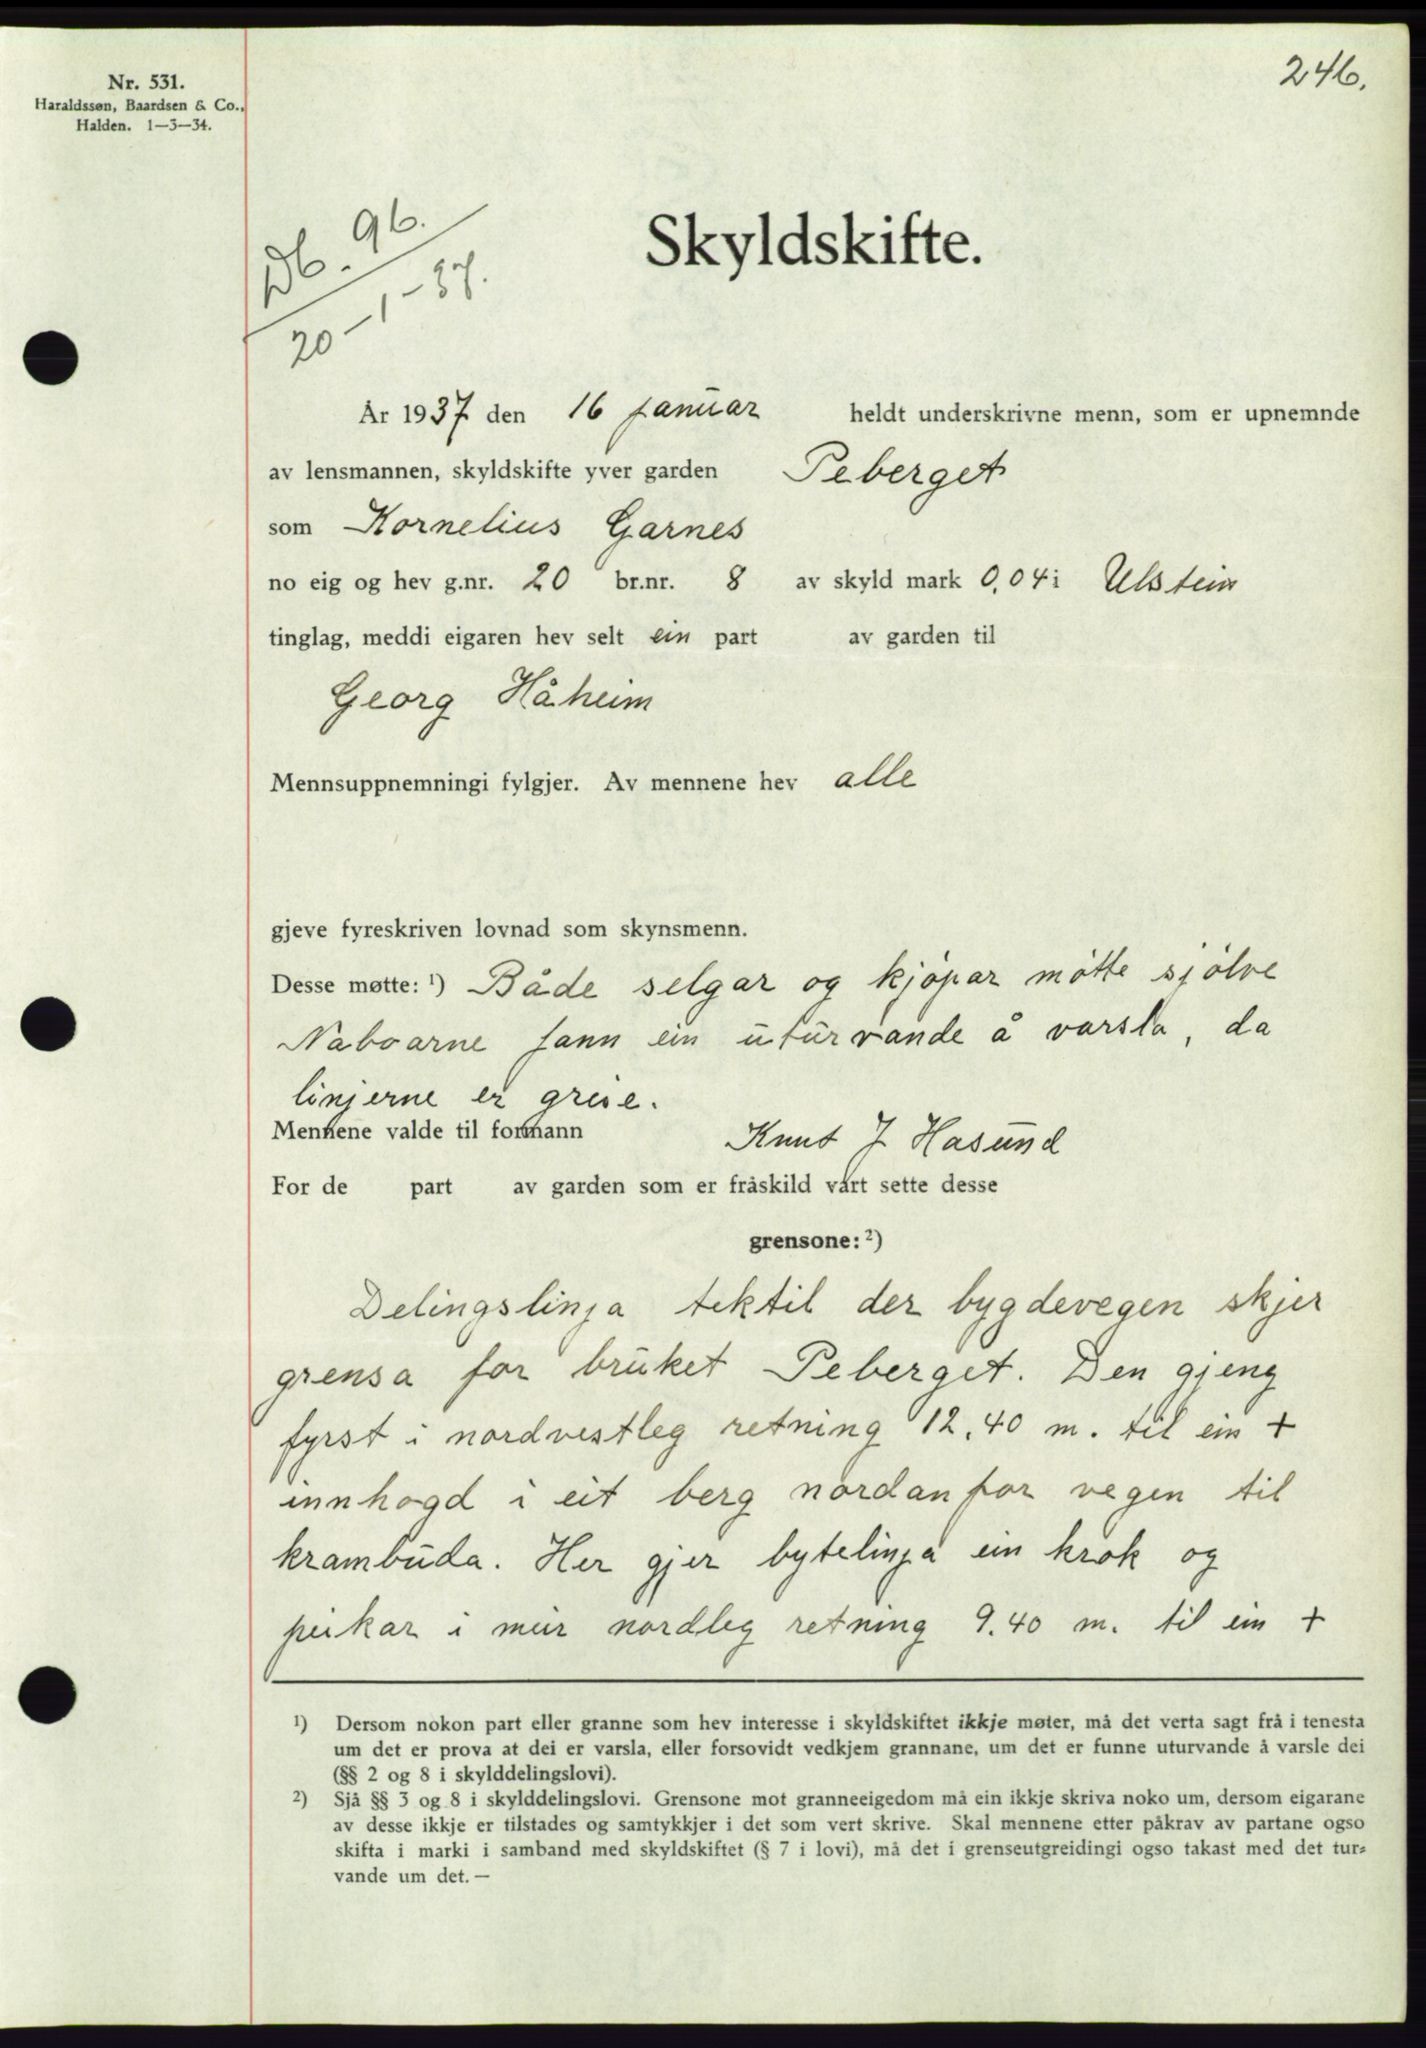 Nr. 531.
Haraldssøn, Baardsen & Co.,
Halden. 1—3—34.
246.
Db. 96.
20-1-37.
Skyldskifte.
År 1937 den 16 januar heldt underskrivne menn, som er upnemnde
av lensmannen, skyldskifte yver garden Peberget
som Kornelius Garnes
no eig og hev g.nr. 20 br.nr. 8 av skyld mark 0,04 i Ulstein
tinglag, meddi eigaren hev selt ein part av garden til
Georg Håheim
Mennsuppnemningi fylgjer. Av mennene hev alle
gjeve fyreskriven lovnad som skynsmenn.
Desse møtte: ¹) Både selgar og kjøpar møtte sjølve
Naboarne fann ein uturvande å varsla, da
linjerne er greie.
Mennene valde til formann Knut J Hasund
For de part av garden som er fråskild vart sette desse
grensone: ²)
Delingslinja tektil der bygdevegen skjer
grensa for bruket Peberget. Den gjeng
fyrst i nordvestleg retning 12,40 m. til ein +
innhogd i eit berg nordanfor vegen til
krambuda. Her gjer bytelinja ein krok og
peikar i meir nordleg retning 9.40 m. til ein +
¹) Dersom nokon part eller granne som hev interesse i skyldskiftet ikkje møter, må det verta sagt frå i tenesta
um det er prova at dei er varsla, eller forsovidt vedkjem grannane, um det er funne uturvande å varsle dei
(§§ 2 og 8 i skylddelingslovi).
²) Sjå §§ 3 og 8 i skylddelingslovi. Grensone mot granneeigedom må ein ikkje skriva noko um, dersom eigarane
av desse ikkje er tilstades og samtykkjer i det som vert skrive. Skal mennene etter påkrav av partane ogso
skifta i marki i samband med skyldskiftet (§ 7 i lovi), må det i grenseutgreidingi ogso takast med det tur-
vande um det. —